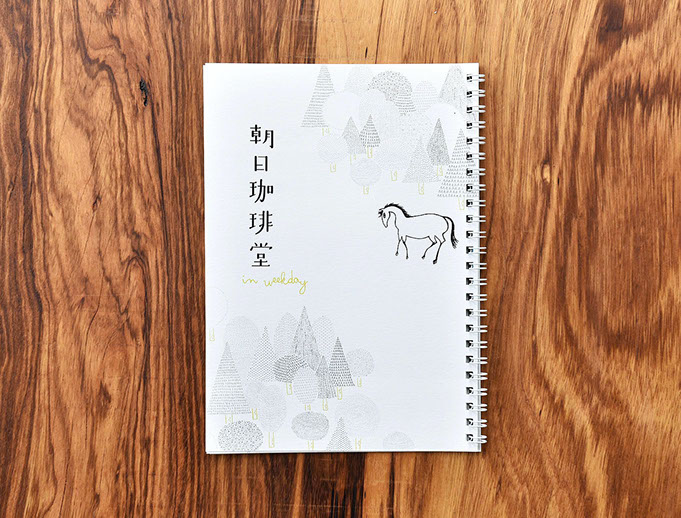 朝日珈琲堂
in weekday